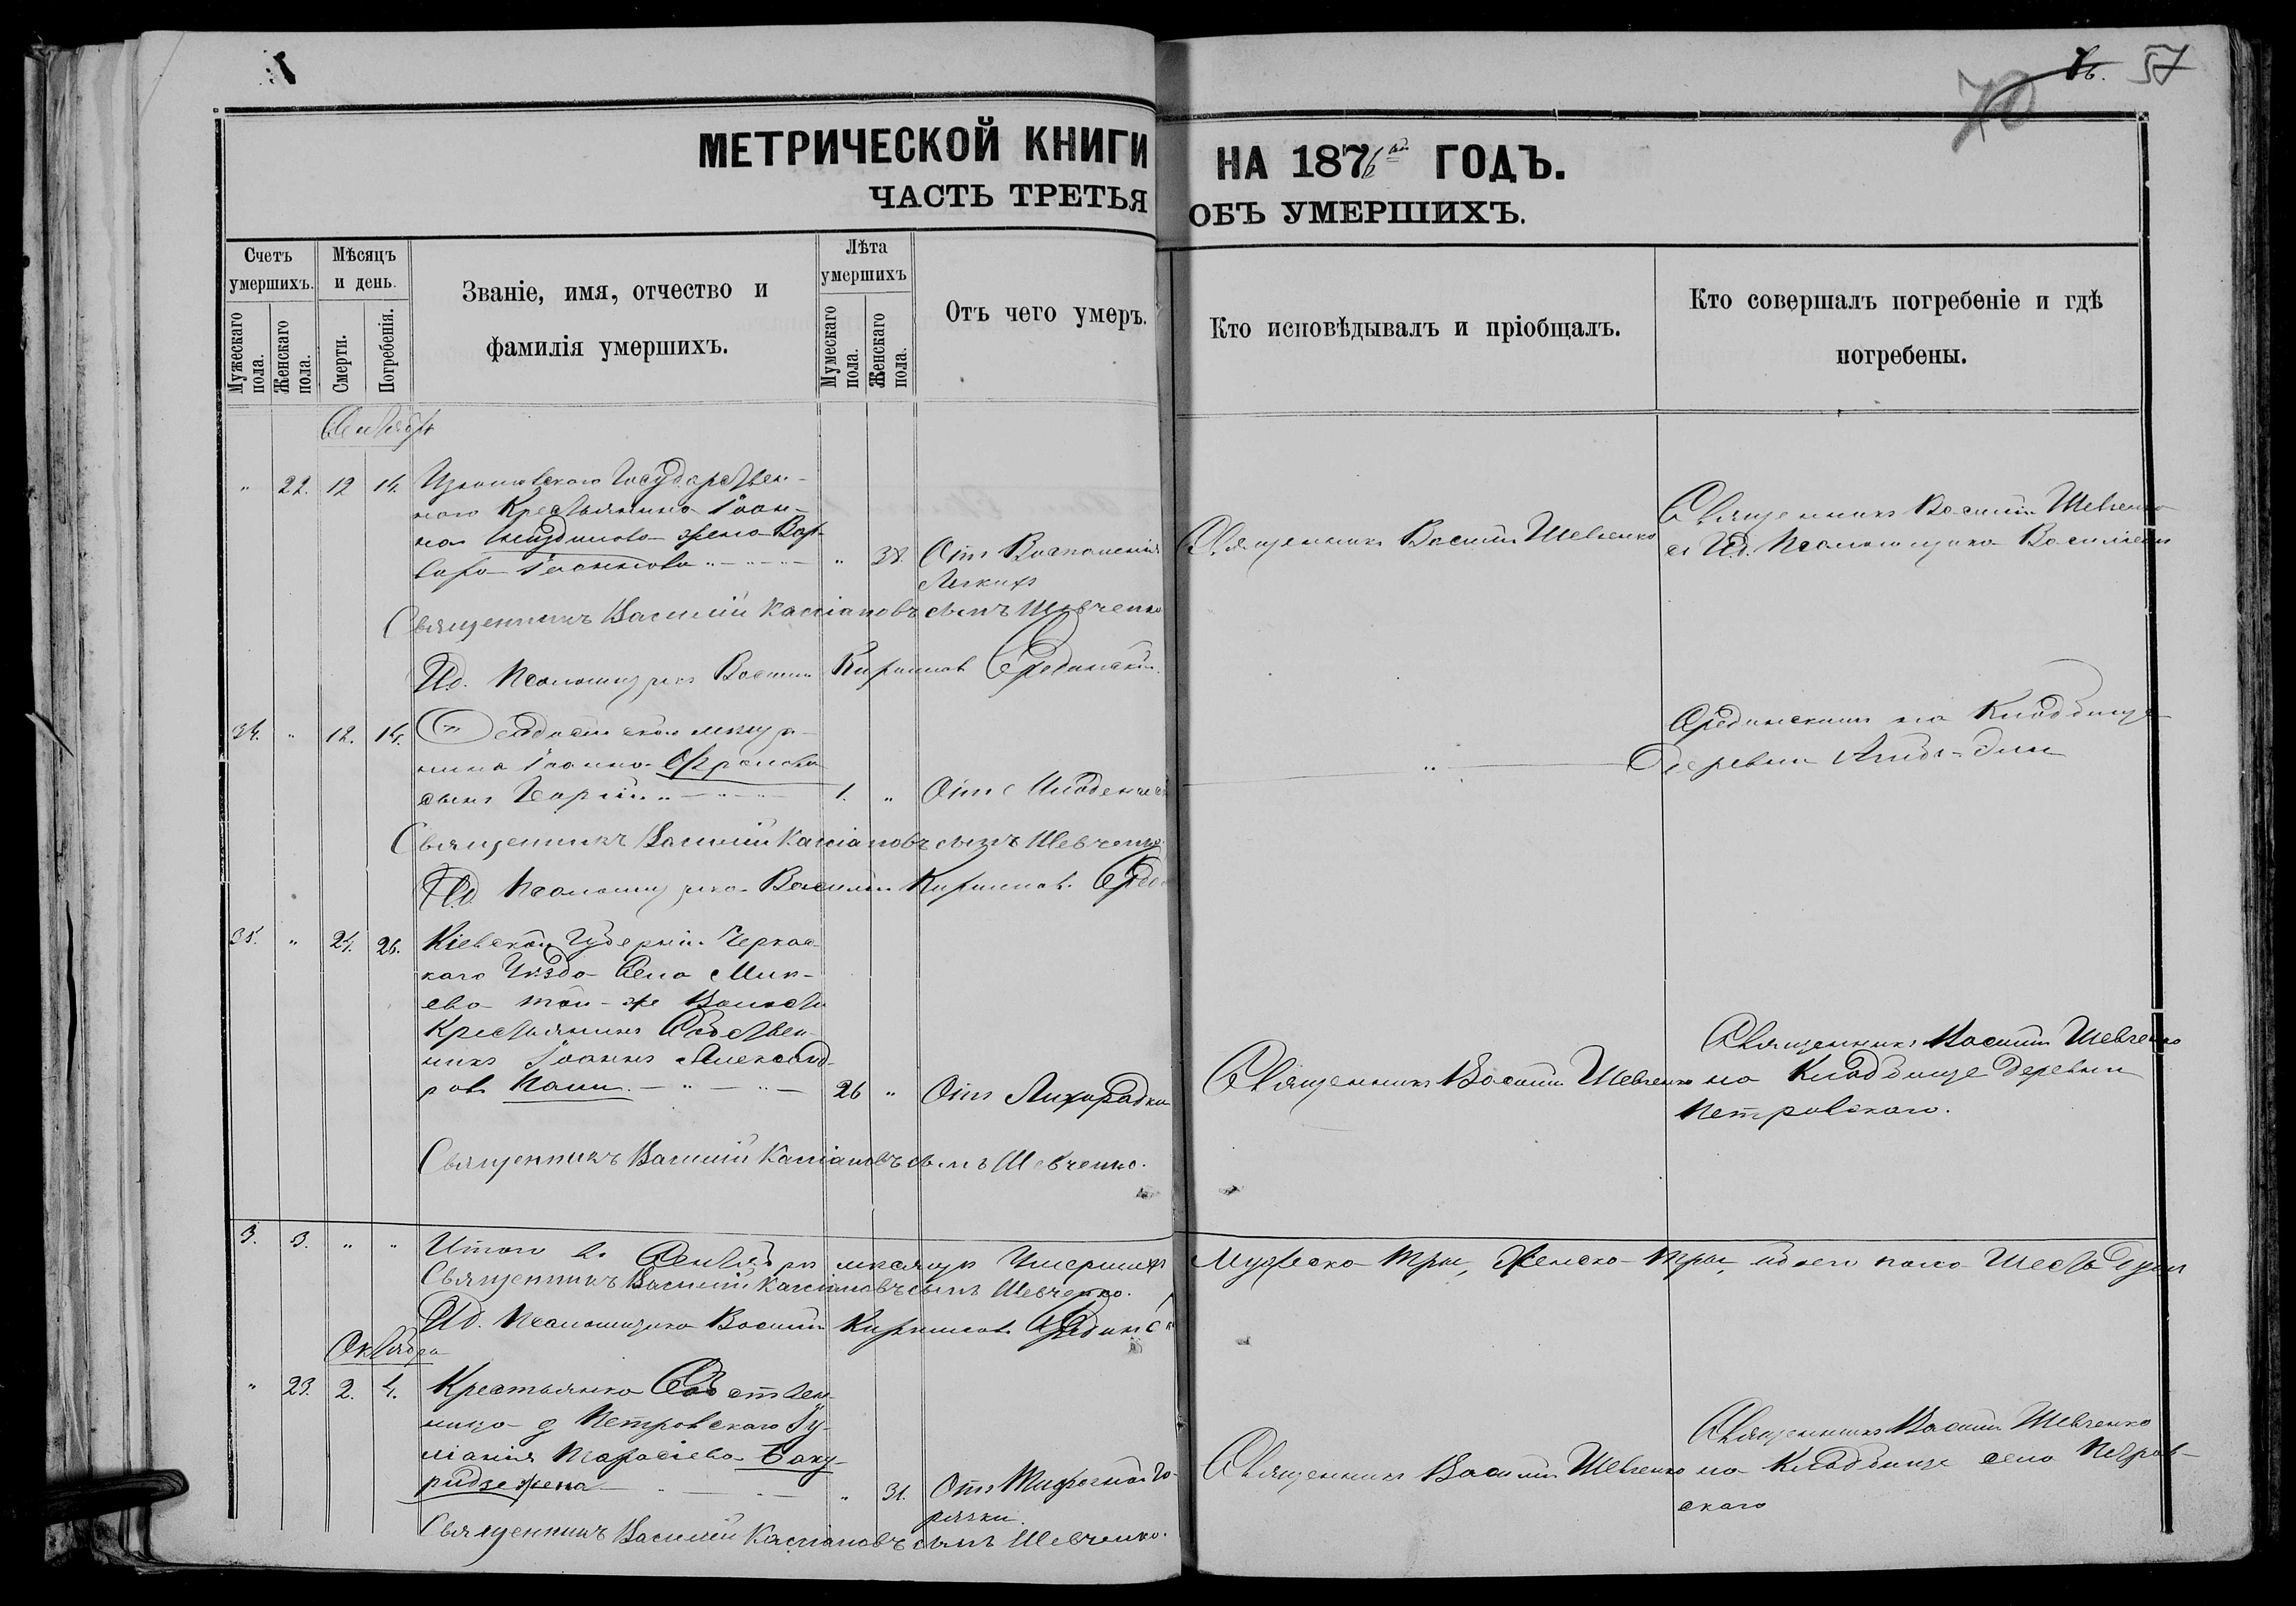 76. 57
70
МЕТРИЧЕСКОЙ КНИГИ НА 1876 ГОДЪ.
ЧАСТЬ ТРЕТЬЯ ОБЪ УМЕРШИХЪ.
Счетъ умершихъ.
Мужескаго пола.
Женскаго пола.
Мѣсяцъ и день.
Смерти.
Погребенія.
Званіе, имя, отчество и
фамилія умершихъ.
Лѣта умершихъ
Мужескаго пола.
Женскаго пола.
Отъ чего умеръ.
Кто исповѣдывалъ и пріобщалъ.
Кто совершалъ погребеніе и гдѣ
погребены.
Сентябрь
" 22. 12 14. Государствен-
наго Крестьянина Іоан-
на жена Вар-
вара " 38. Отъ Воспаленія
Легкихъ
Священникъ Василій Шевченко
Священникъ Василій Шевченко
и И.д. Псаломщика Василій
Священникъ Василій Кассіановъ сынъ Шевченко
И.д. Псаломщика Василій Кирилловъ Срединскій.
34. " 12. 14.
нина Іоанна
сынъ 1. " Отъ
"
Срединскимъ на Кладбище
Деревни
Священникъ Василій Кассіановъ сынъ Шевченко
И.д. Псаломщика Василій Кирилловъ Сред
35. " 24. 26. Кіевской Губерніи Черкас-
каго Уѣзда Села Мик-
ева той-же Волости
Крестьянинъ Собствен-
никъ Іоаннъ Александ-
ровъ 26 " Отъ Лихорадки
Священникъ Василій Шевченко
Священникъ Василій Шевченко
на Кладбище деревни
Петровскаго.
Священникъ Василій Кассіановъ сынъ Шевченко.
3. 3. " " Итого въ Сентябрѣ мѣсяцѣ Умершихъ Мужеска три, Женска три, обоего пола Шесть душъ
Священникъ Василій Кассіановъ сынъ Шевченко.
И.д. Псаломщика Василій Кирилловъ Срединск
Октябрь
" 23. 2. 4. Крестьянка Собствен-
ница д Петровскаго Іу-
ліанія Тарасіева Баку-
ридзе жена " 31. Отъ
рячки.
Священникъ Василій Шевченко
Священникъ Василій Шевченко
на Кладбище села Петров-
скаго
Священникъ Василій Кассіановъ сынъ Шевченко.